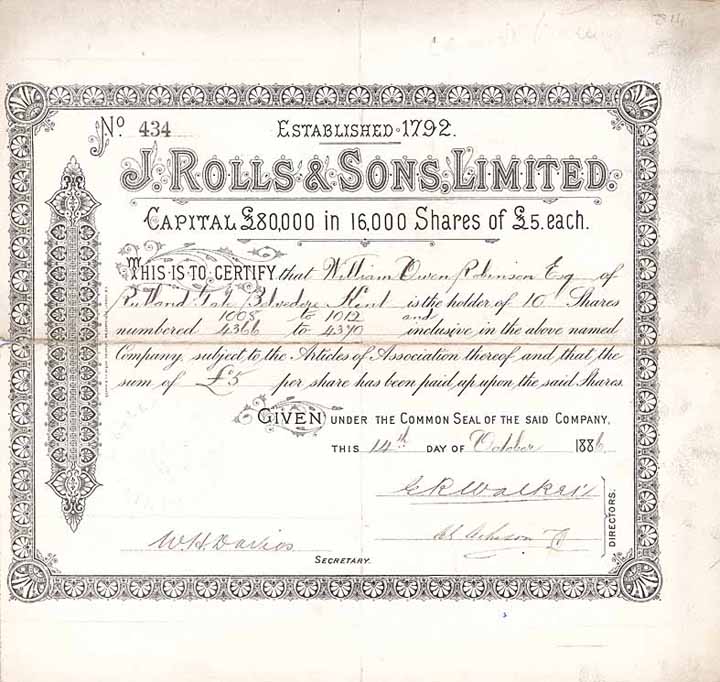 No 434
ESTABLISHED 1792.
J. ROLLS & SONS, LIMITED.
CAPITAL £80,000 in 16,000 Shares of £5. each.
THIS IS TO CERTIFY that William Owen Robinson Esq of
Rutland Belvedere Kent is the holder of 10 Shares
1008 to 1012 and
numbered 4366 to 4370 inclusive, in the above named
Company, subject to the Articles of Association thereof and that the
sum of £5 per share has been paid up upon the said Shares.
GIVEN UNDER THE COMMON SEAL OF THE SAID COMPANY,
THIS 14th DAY OF October 1886
G R Walker
DIRECTORS.
W. H. Davies
SECRETARY.